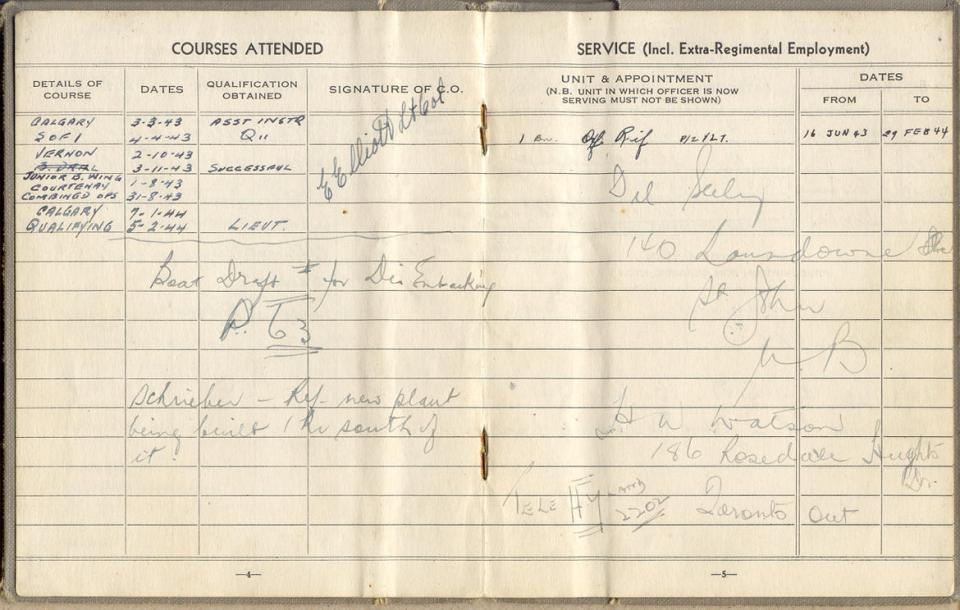 COURSES ATTENDED
DETAILS OF COURSE
DATES
QUALIFICATION OBTAINED
SIGNATURE OF C.O.
CALGARY 3-3-43 ASST INSTR
S OF I 4-4-43 "Q"
E Elliott Lt Col
VERNON 2-10-43
3-11-43 SUCCESSFUL
JUNIOR B. WING
COURTENAY 1-8-43
COMBINED OPS 31-8-43
CALGARY 7-1-44
QUALIFYING 5-2-44 LIEUT.
Boat Draft # for Dis Embarking
P. T 63
Schrieber - Ref. new plant
being built 1 Mi south of
it.
—4—
SERVICE (Incl. Extra-Regimental Employment)
UNIT & APPOINTMENT
(N.B. UNIT IN WHICH OFFICER IS NOW
SERVING MUST NOT BE SHOWN)
DATES
FROM
TO
1 Bn. Rif P/2/LT. 16 JUN 43 29 FEB 44
Del Seely
140 Lansdowne
St John
N B
H W Watson
186 Rosedale Heights
Dr.
TELE HYLAND
2202
Toronto Ont
—5—